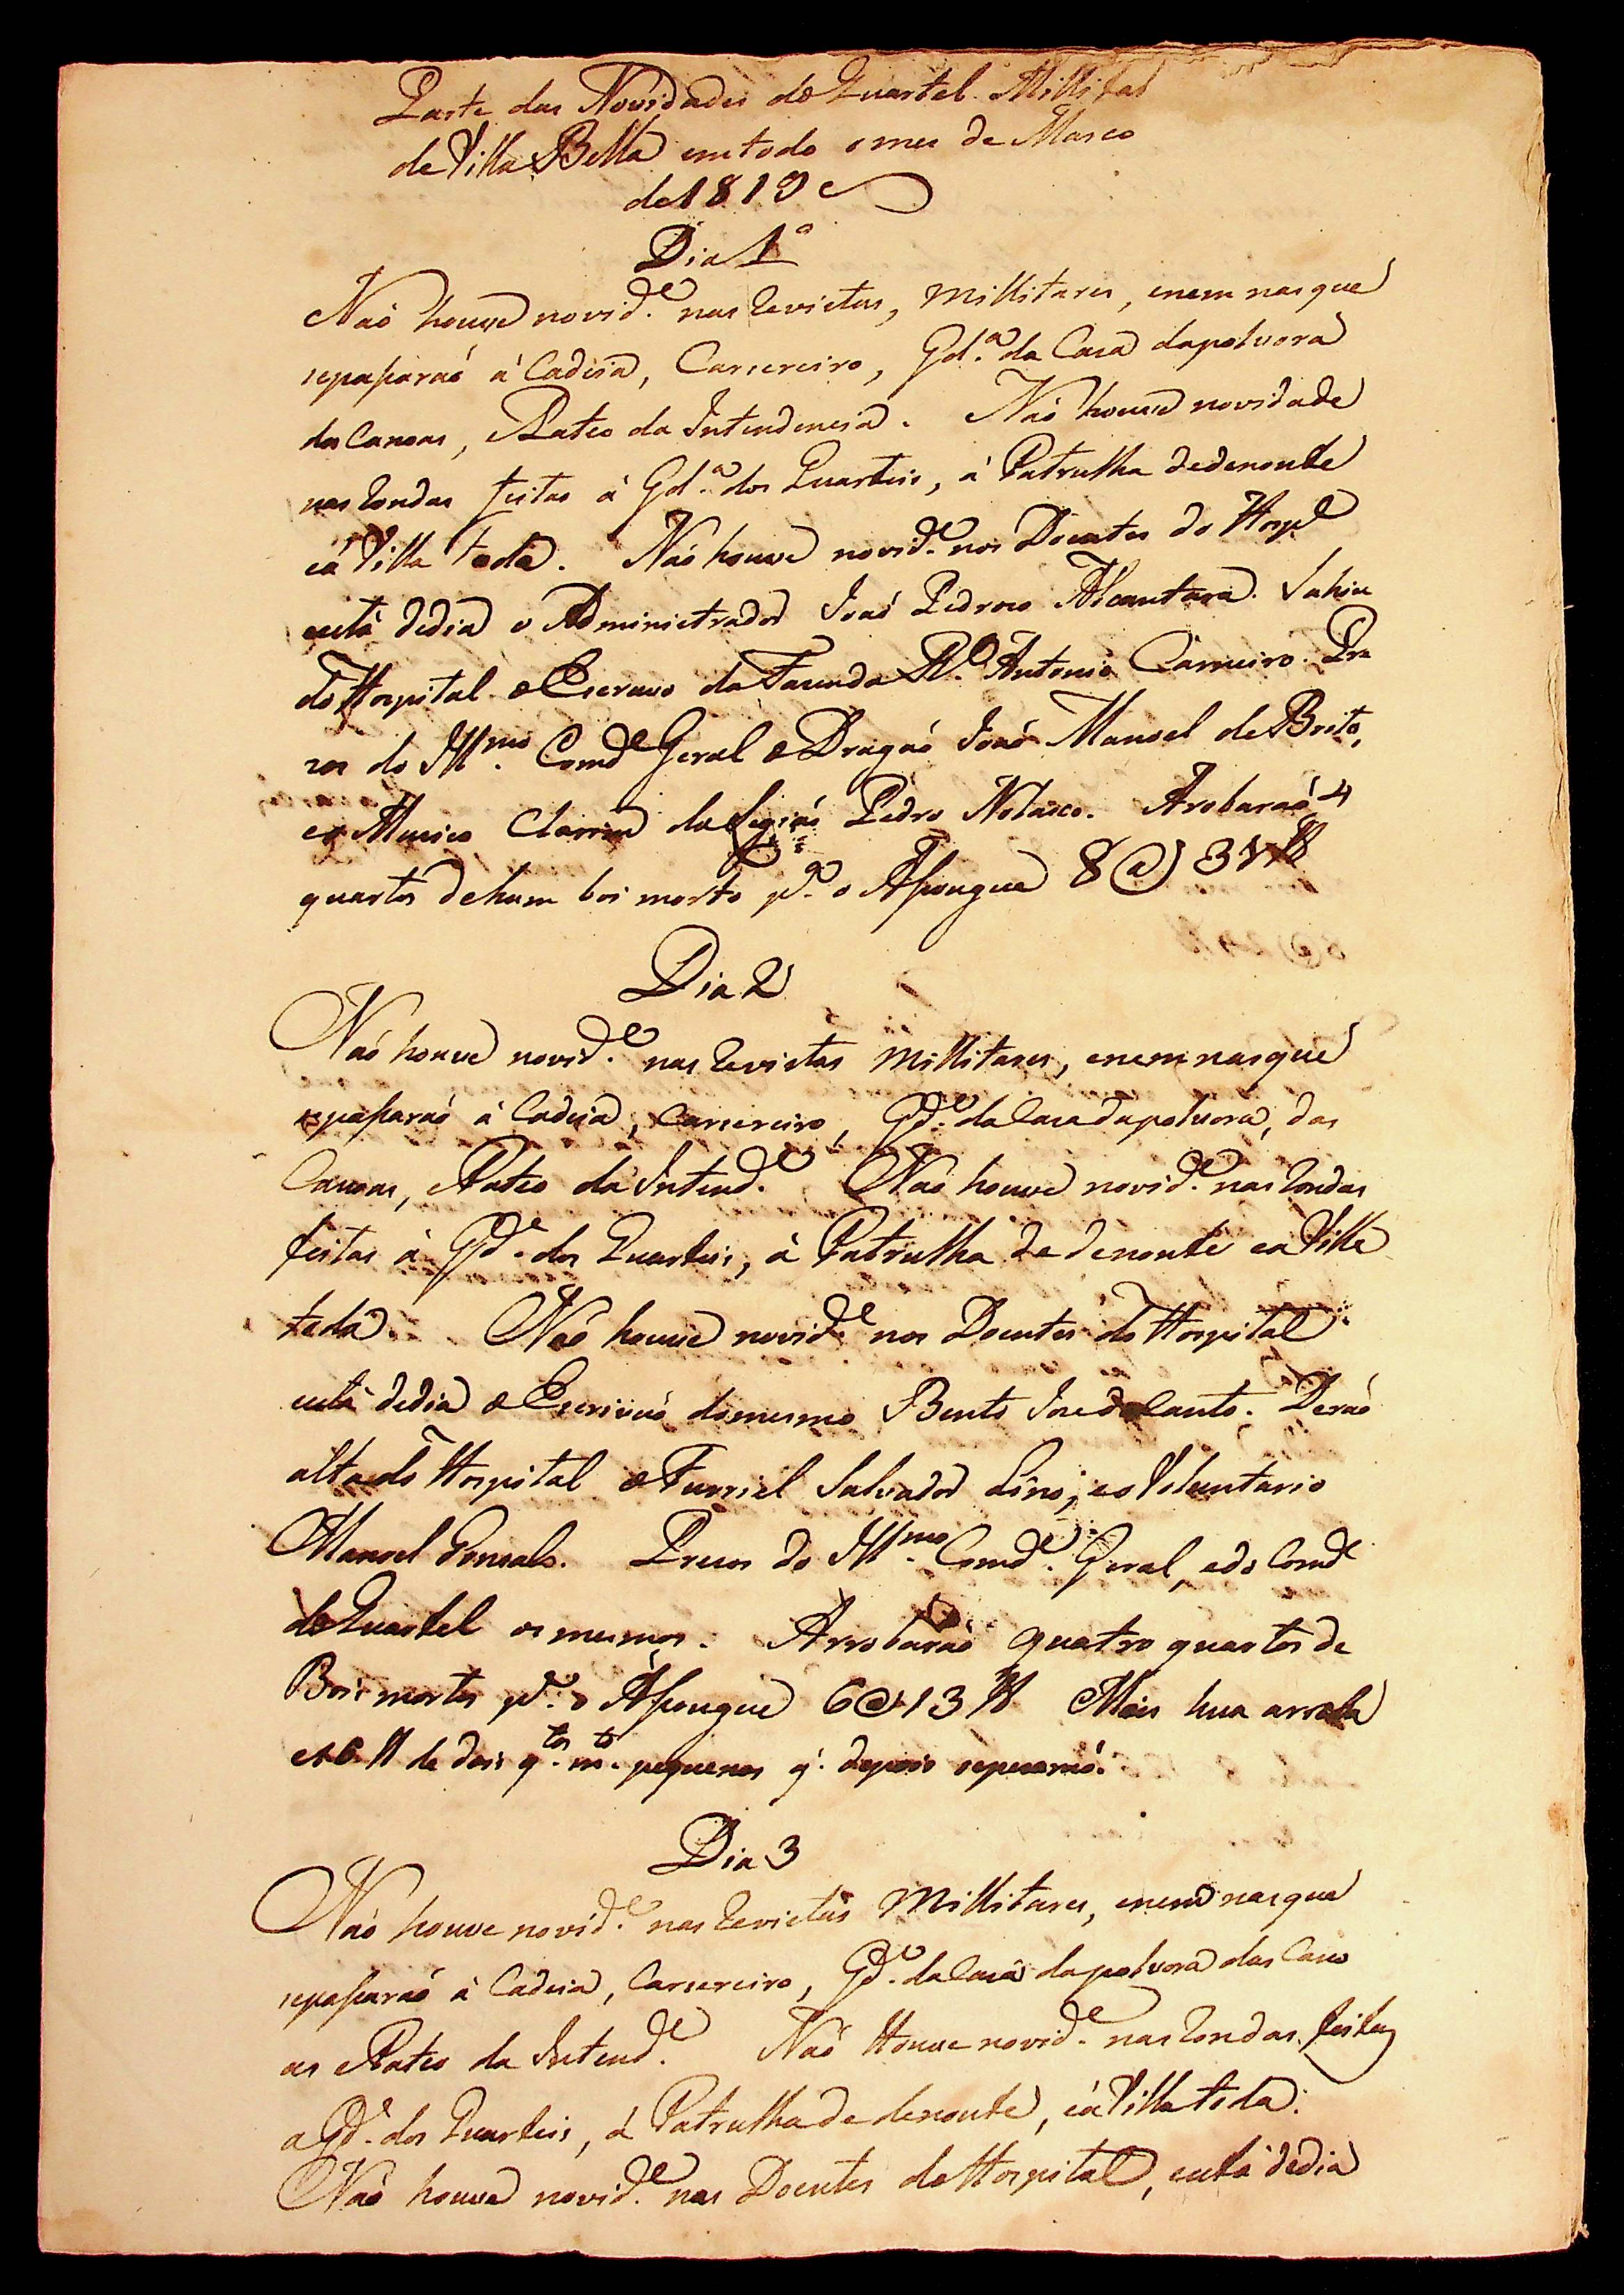 Parte das Novidades do Quartel Millitar
de Villa Bella emtodo o mes de Marco
de 1819
Dia 1º
Naõ houve novid.e nas Revistas, Millitares, enem nasque
sepaparaõ á Cadeia, Carsereiro, Gd.a da Casa dapolvora
das Canoas, Pateo da Intendencia. Naõ houve novidade
nas Rondas feitas á Gd.a dos Quarteis, á Patrulha dedenoute
eá Villa toda. Naõ houve novid.e nos Doentes do Hosp.l
está dedia o Administrador Joaõ Pedroso Alcantara. Sahiu
do Hospital o Escravo da Fazenda R.l Antonio Carneiro. Pre
zos do Ill.mo Comd.e Geral o Dragaõ Joaõ Manoel de Brito,
eo Musico Clarim da Legiaõ Pedro Nolasco. Arobaraõ 4
quartos dehum boi morto p.a o Asougue 8@
Dia 2
Naõ houve novid.e nas Revistas Millitares, enem nasque
sepasaraõ á Cadeia, Carsereiro, Gd.a da Casa dapolvora, das
Canoas, Pateo da Intend.a Naõ houve novid.e nas Rondas
feitas á Gd.a dos Quarteis, á Patrulha de denoute eá Villa
toda. Naõ houve novid.e nos Doentes do Hospital
está dedia o Escrivaõ domesmo Bento Jose do Canto. Deraõ
alta do Hospital o Furriel Salvador Lino, eo Voluntario
Manoel Gonsals. Prezos do Ill.mo Comd.e Geral, edo Comd.e
do Quartel os mesmos. Arrobaraõ quatro quartos de
Bois mortos p.a o Asougue 6@ 13 lb Mais hua arroba
e 16 lb de dois q.tos m.to pequenos q. depois sepesaraõ.
Dia 3
Naõ houve novid.e nas Revistas Millitares, enem nasque
sepasaraõ á Cadeia, Carsereiro, Gd.a da Casa dapolvora das Cano
as Pateo da Intend.a Naõ Houve novid.e nas Rondas feitas
a Gd.a dos Quarteis, á Patrulha de denoute, eá Villa toda.
Naõ houve novid.e nos Doentes do Hospital, está dedia